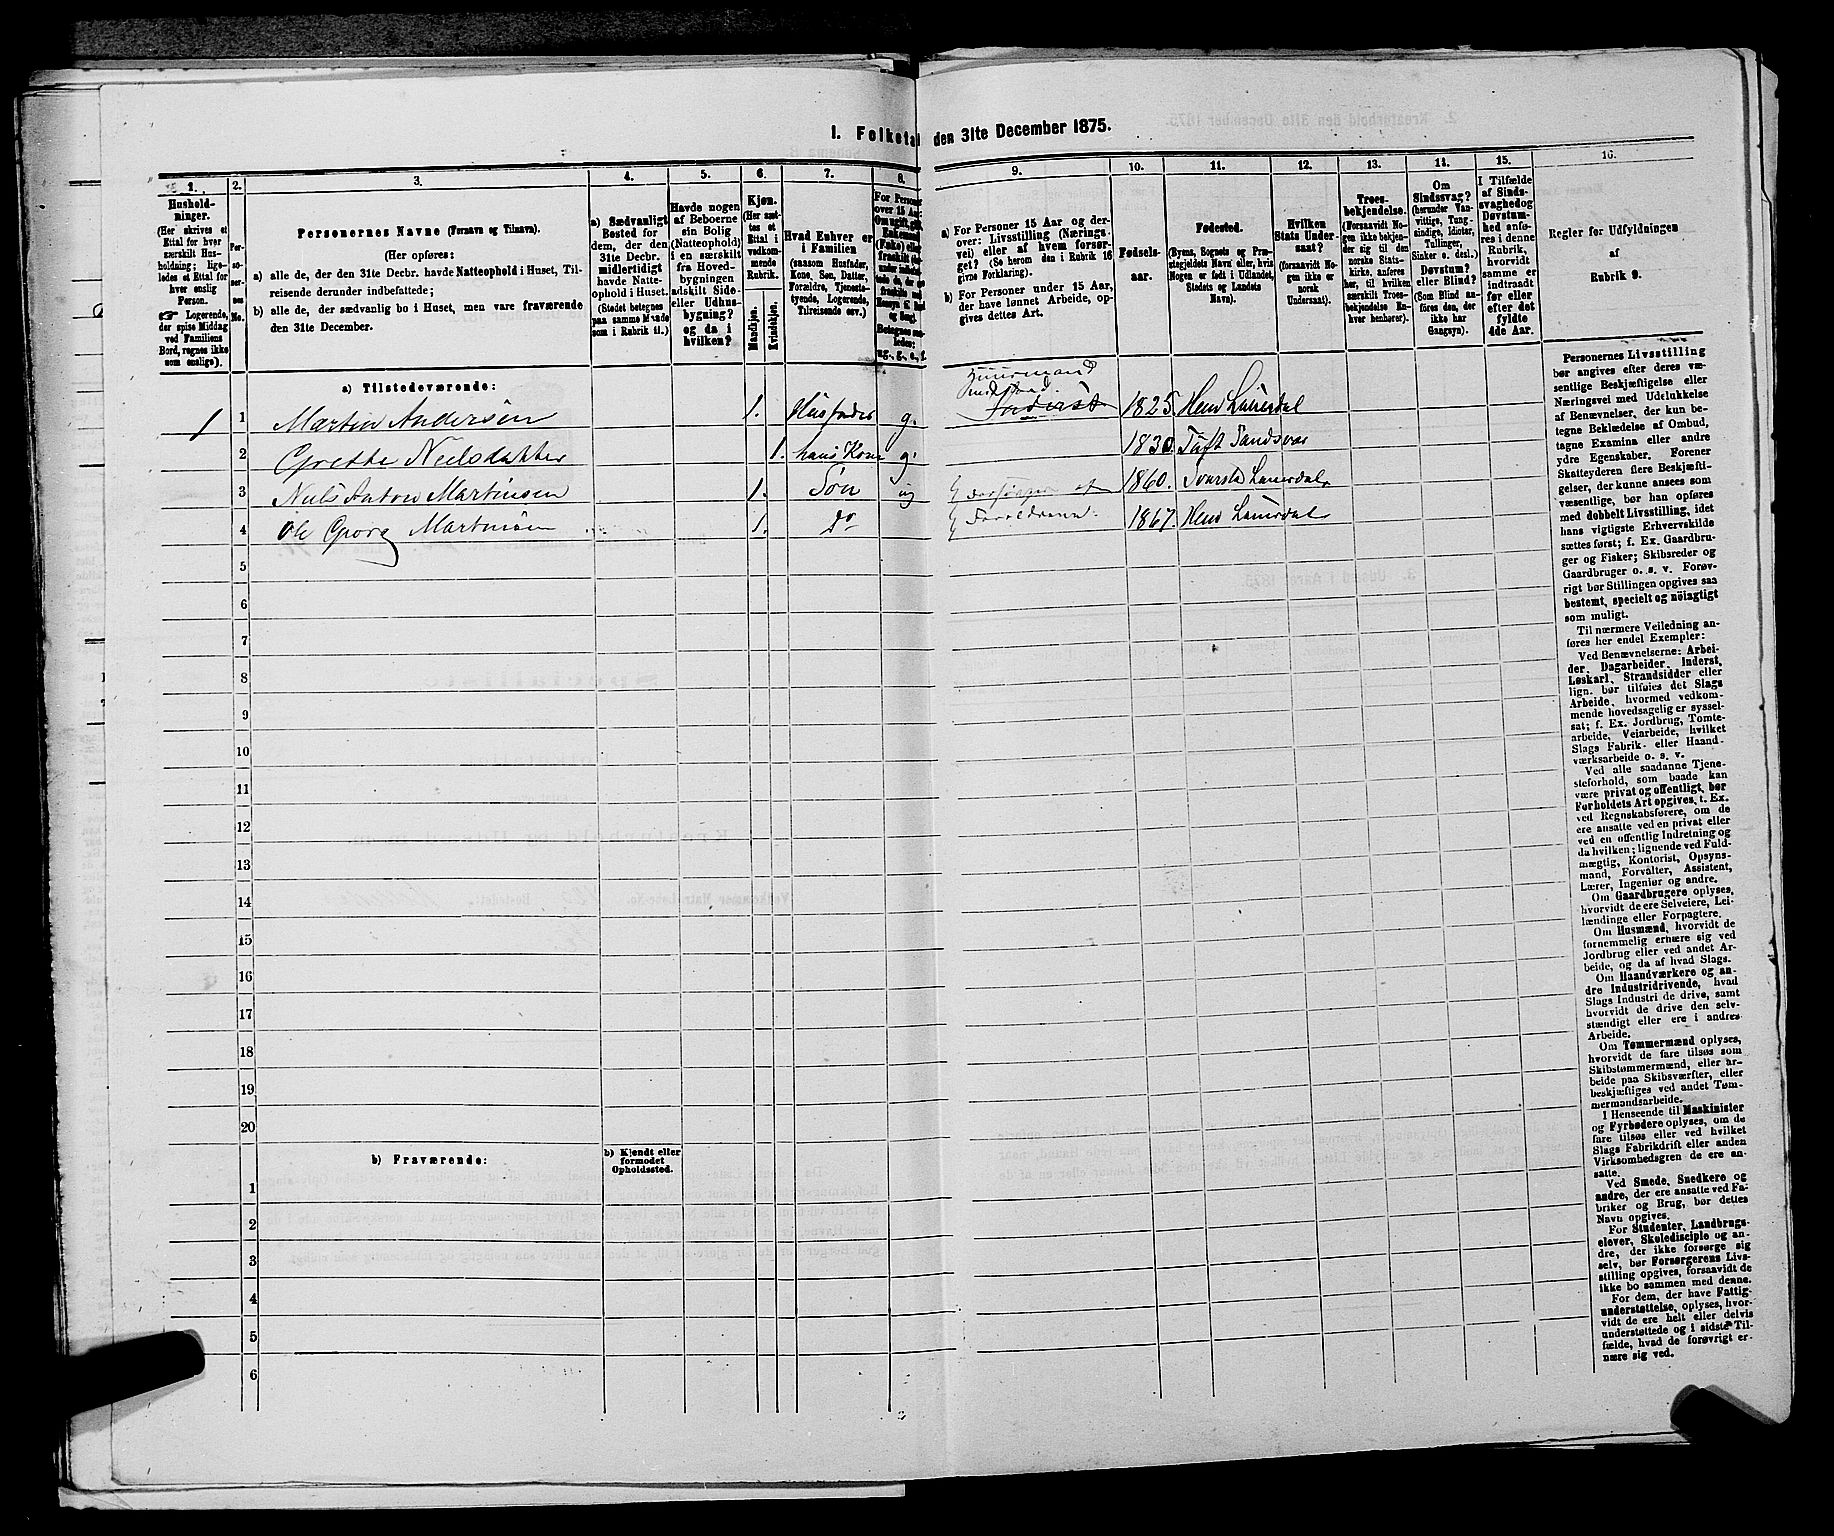 1. Folketa
den 31te December 1875.
1.
Hushold-
ninger.
(Her skrives et
Ettal for hver
særskilt Hus-
holdning; lige-
ledes et Ettal for
hver enslig
Person.
Logerende,
der spise Middag
ved Familiens
Bord, regnes ikke
som enslige).
2.
Per-
so-
ner-
nes
No.
3.
Personernes Navne (Fornavn og Tilnavn).
(Her opføres:
a) alle de, der den 31te Decbr. havde Natteophold i Huset, Til-
reisende derunder indbefattede;
b) alle de, der sædvanlig bo i Huset, men vare fraværende
den 31te December.
4.
a) Sædvanligt
Bosted for
dem, der den
31te Decbr.
midlertidigt
havde Natte-
ophold i Huset.
(Stedet betegnes
paa samme Maade
som i Rubrik 11.)
5.
Havde nogen
af Beboerne
ein Bolig
(Natteophold)
i en særskilt
fra Hoved-
bygningen
adskilt Side-
eller Udhus-
bygning?
og da i
hvilken?
6.
Kjøn.
(Her sæt-
tes et
Ettal i
vedkom-
mende
Rubrik.
Mandkjøn.
Kvindekjøn.
7.
Hvad Enhver er
i Familien
(saasom Husfader,
Kone, Søn, Datter,
Forældre, Tjeneste-
tyende, Logerende,
Tilreisende osv.)
8.
For Personer
over 15 Aar:
9.
a) For Personer 15 Aar og der-
over: Livsstilling (Nærings-
vei) eller af hvem forsør-
get? (Se herom den i Rubrik 16
givne Forklaring).
b) For Personer under 15 Aar,
der have lønnet Arbeide, op-
gives dettes Art.
10.
Fødsels-
aar.
11.
Fødested.
(Byens, Sognets og Præ-
stegjeldets Navn eller, hvis
Nogen er født i Udlandet,
Stedets og Landets
Navn).
12.
Hvilken
Stats Under-
saat?
(forsaavidt No-
gen ikke er
norsk
Undersaat).
13.
Troes-
bekjendelse.
(Forsaavidt No-
gen ikke bekjen-
der sig til den
norske Stats-
kirke, anføres
her, til hvilken
særskilt Troes-
bekjendelse En-
hver henhører).
14.
Om
Sindssvag?
(herunder Van-
vittige, Tung-
sindige, Idioter,
Tullinger,
Sinker o. desl.).
Døvstum?
eller Blind?
(Som Blind an-
føres den, der
ikke har
Gangsyn).
15.
I Tilfælde
af Sinds-
svaghed og
Døvstum-
hed anfø-
res i denne
Rubrik,
hvorvidt
samme er
indtraadt
før eller
efter det
fyldte
4de Aar.
16.
Regler for Udfyldningen
af
Rubrik 9.
a) Tilstedeværende:
1 1 Martin Andersen 1. Husfader g. Inderst 1825. Hem Lauerdal
2 Grethe Nielsdatter 1. hans Kone g. 1830. Tuft Sandsvær
3 Niels Anton Martinsen 1. Søn ug forsørges af 1860. Svarstad Lauerdal
4 Ole Georg Martinsen 1. Do Forældrene. 1867. Hem Lauerdal
5
6
7
8
9
10
11
12
13
14
15
16
17
18
19
20
b) Fraværende:
b) Kjendt eller
formodet
Opholdssted.
1
2
3
4
5
6
Personernes Livsstilling
bør angives efter deres væ-
sentlige Beskjæftigelse eller
Næringsvei med Udelukkelse
af Benævnelser, der kun be-
tegne Beklædelse af Ombud,
tagne Examina eller andre
ydre Egenskaber. Forener
Skatteyderen flere Beskjæfti-
gelser, der kunne ansees som
væsentlige, bør han opføres
med dobbelt Livsstilling, idet
hans vigtigste Erhvervskilde
sættes først; f. Ex. Gaardbru-
ger og Fisker; Skibsreder og
Gaardbruger o. s. v. Forøv-
rigt bør Stillingen opgives saa
bestemt, specielt og nöiagtigt
som muligt.
Til nærmere Veiledning an-
føres her endel Exempler:
Ved Benævnelserne: Arbei-
der, Dagarbeider, Inderst,
Løskarl, Strandsidder eller
lign. bør tilføies det Slags
Arbeide, hvormed vedkom-
mende hovedsagelig er syssel-
sat; f. Ex. Jordbrug, Tomte-
arbeide, Veiarbeide, hvilket
Slags Fabrik- eller Haand-
værksarbeide o. s. v.
Ved alle saadanne Tjene-
steforhold, som baade kan
være privat og offentligt, bør
Forholdets Art opgives, t. Ex.
ved Regnskabsførere, om de
ere ansatte ved en privat eller
ved en offentlig Indretning og
da hvilken; lignende ved Fuld-
mægtig, Kontorist, Opsyns-
mand, Forvalter, Assistent,
Lærer, Ingeniør og andre.
Om Gaardbrugere oplyses,
hvorvidt de ere Selveiere, Lei-
lændinge eller Forpagtere.
Om Husmænd, hvorvidt de
fornemmelig erhære sig ved
Jordbrug eller ved andet Ar-
beide, og da af hvad Slags.
Om Haandværkere og an-
dre Industridrivende, hvad
Slags Industri de drive, samt
hvorvidt de drive den selv-
stændigt eller ere i andres
Arbeide.
Om Tømmermænd oplyses,
hvorvidt de fare tilsøs som
Skibstømmermænd, eller ar-
beide paa Skibsværfter, eller
beskjæftiges ved andet Tøm-
mermandsarbeide.
I Henseende til Maskinister
og Fyrbødere oplyses, om de
fare tilsøs eller ved hvilket
Slags Fabrikdrift eller anden
Virksomhedsgren de ere an-
satte.
Ved Smede, Snedkere og
andre, der ere ansatte ved Fa-
briker og Brug, bør dettes
Navn opgives.
For Studenter, Landbrugs-
elever, Skoledisciple og an-
dre, der ikke forsørge sig
selv, bør Forsørgerens Livs-
stilling opgives, forsaavidt de
ikke bo sammen med denne.
For dem, der have Fattig-
understøttelse, oplyses, hvor-
vidt de ere helt eller delvis
understøttede og i sidste Til-
fælde, hvad de forøvrigt er-
nære sig ved.